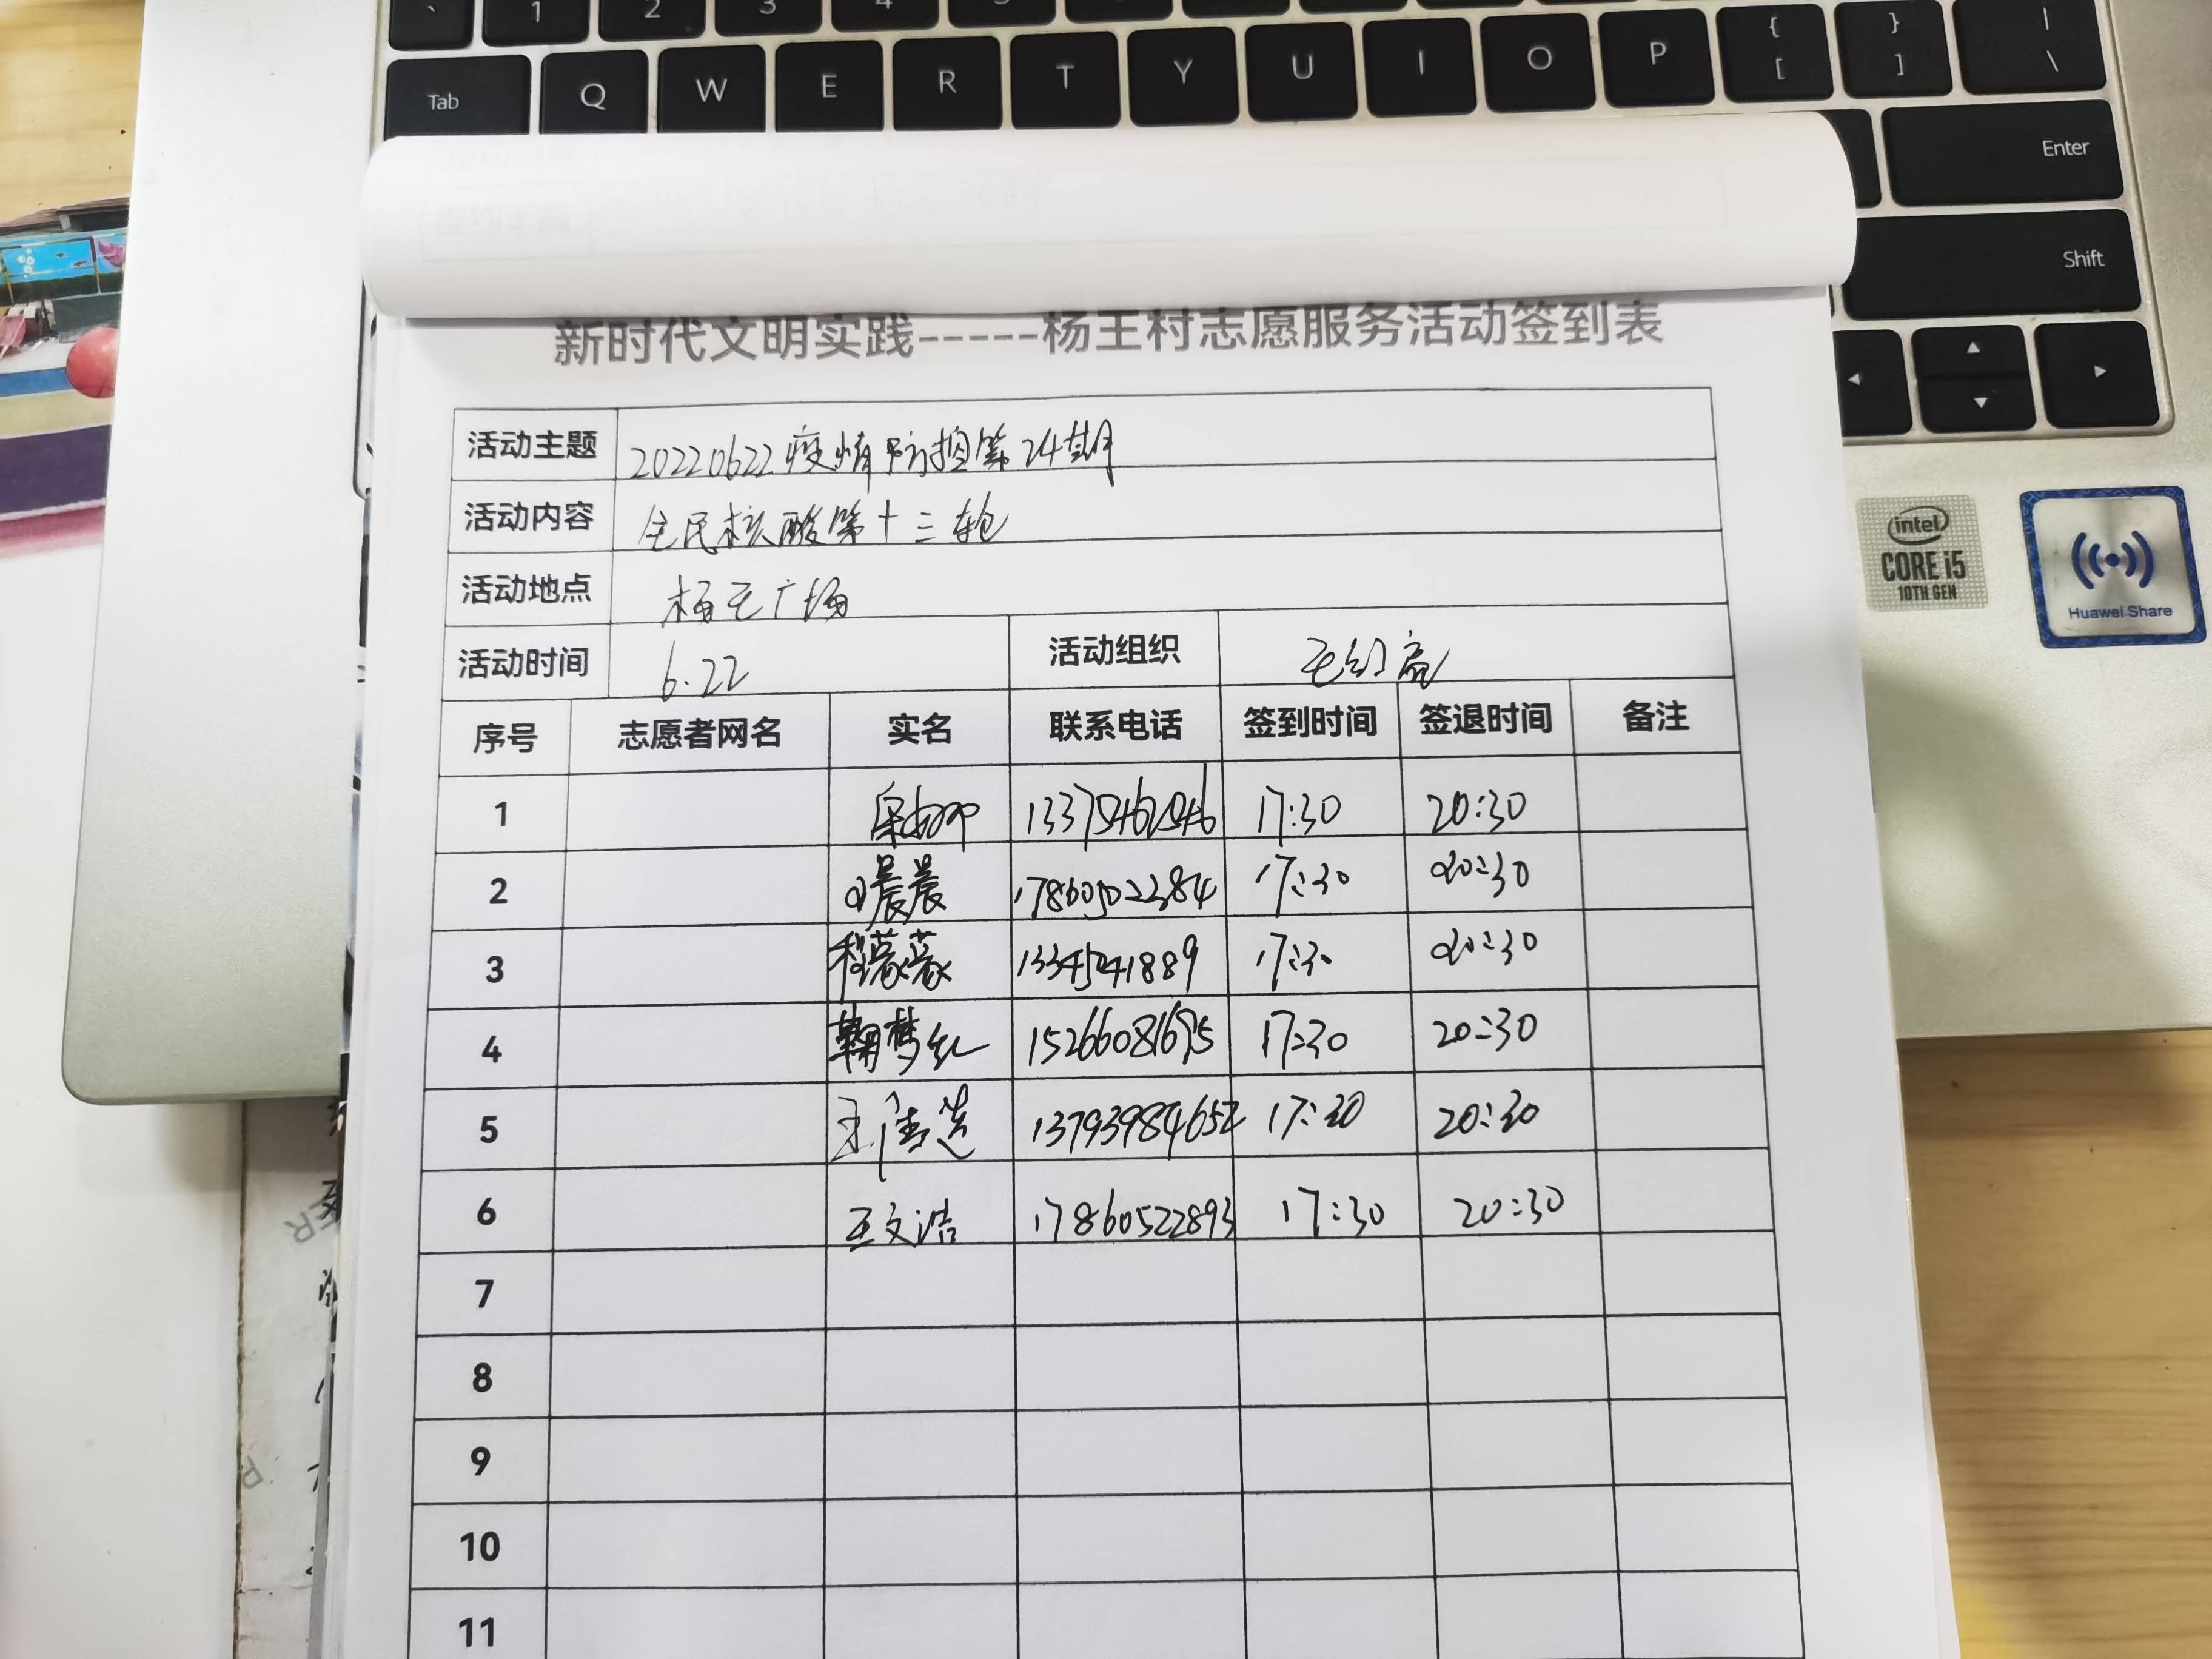 ` 1 2 3 4
Tab Q W E R T Y U I O P { [ } ] | \
Enter
Shift
新时代文明实践-----杨王村志愿服务活动签到表
活动主题 20220622疫情防控第24期
活动内容 全民核酸第十三轮
活动地点 杨王广场
活动时间 6.22 活动组织
序号 志愿者网名 实名 联系电话 签到时间 签退时间 备注
1 17:30 20:30
2 晨晨 17860522384 17:30 20:30
3 程蒙蒙 17:30 20:30
4 鞠梦红 15266081695 17:30 20:30
5 13793984652 17:30 20:30
6 王文浩 17860522893 17:30 20:30
7
8
9
10
11
intel
CORE i5
10TH GEN
Huawei Share